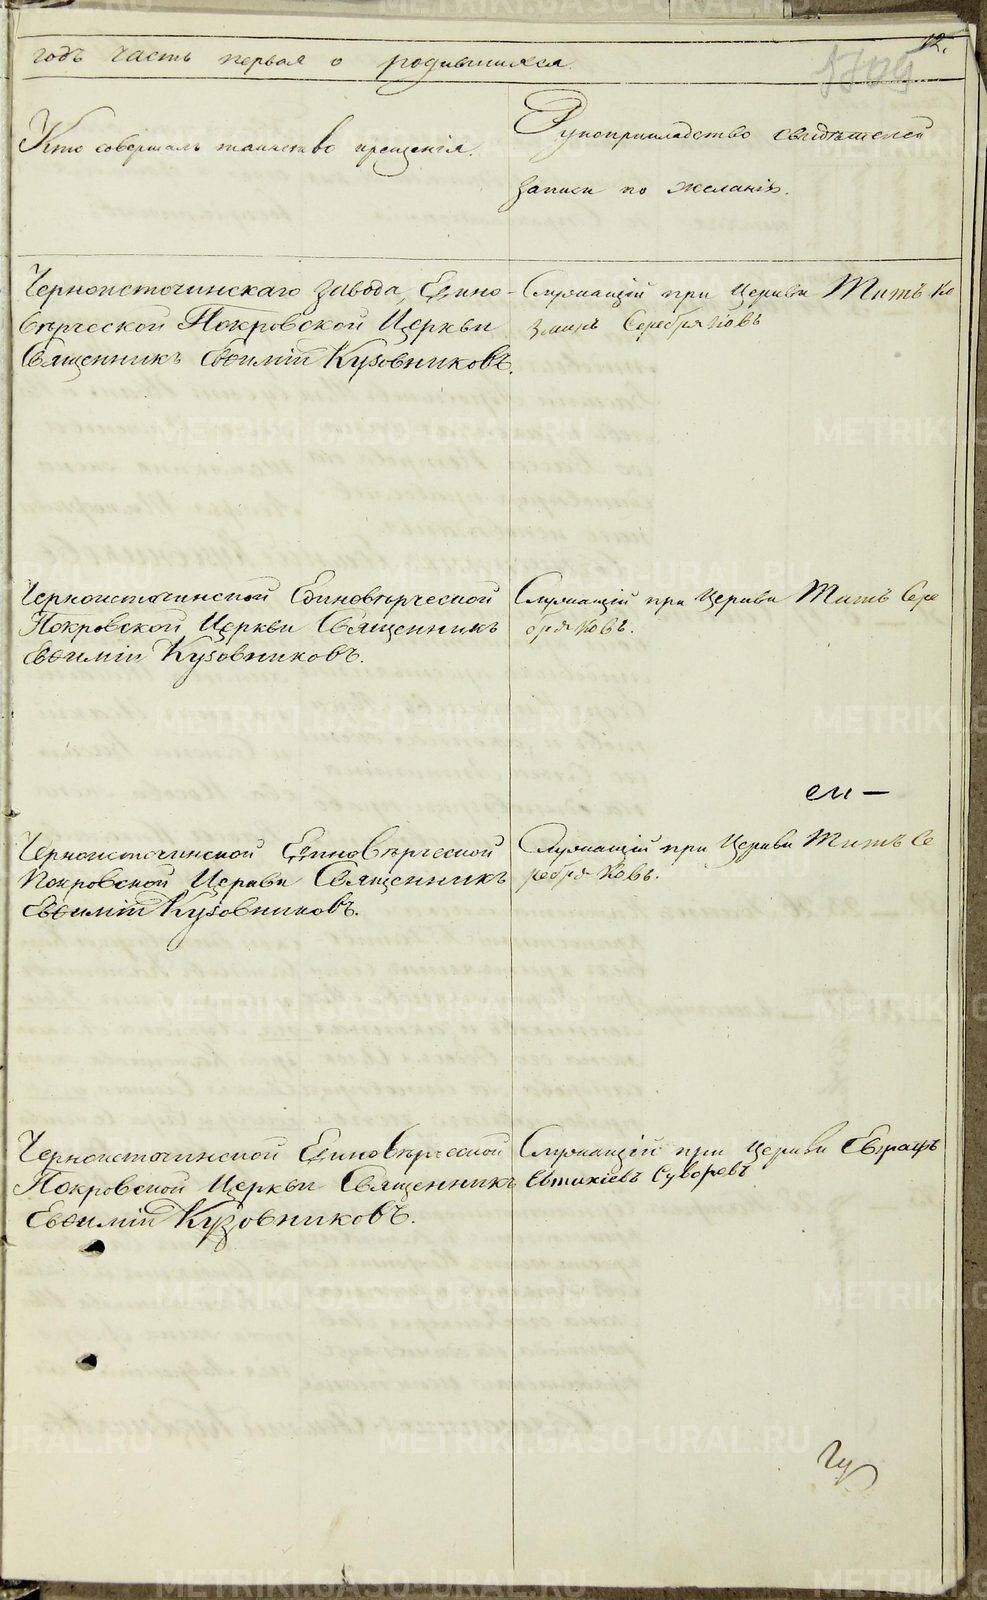 12.
годъ часть первая о родившихся.
Кто совершалъ таинство крещенія.
Рукоприкладство свидѣтелей
записи по желанію.
Черноисточинскаго завода, Едино-
вѣрческой Покровской Церкви
Священникъ Евѳимій Кузовниковъ.
Служащій при Церкви Титъ Ко
зминъ Серебряковъ
Черноисточинской Единовѣрческой
Покровской Церкви Священникъ
Евѳимій Кузовниковъ.
Служащій при Церкви Титъ Сере
бряковъ.
Черноисточинской Единовѣрческой
Покровской Церкви Священникъ
Евѳимій Кузовниковъ.
Служащій при Церкви Титъ Се
ребряковъ.
Черноисточинской Единовѣрческой
Покровской Церкви Священникъ
Евѳимій Кузовниковъ.
Служащій при Церкви Евграфъ
Евтихіевъ Суворовъ
METRIKI.GASO-URAL.RU